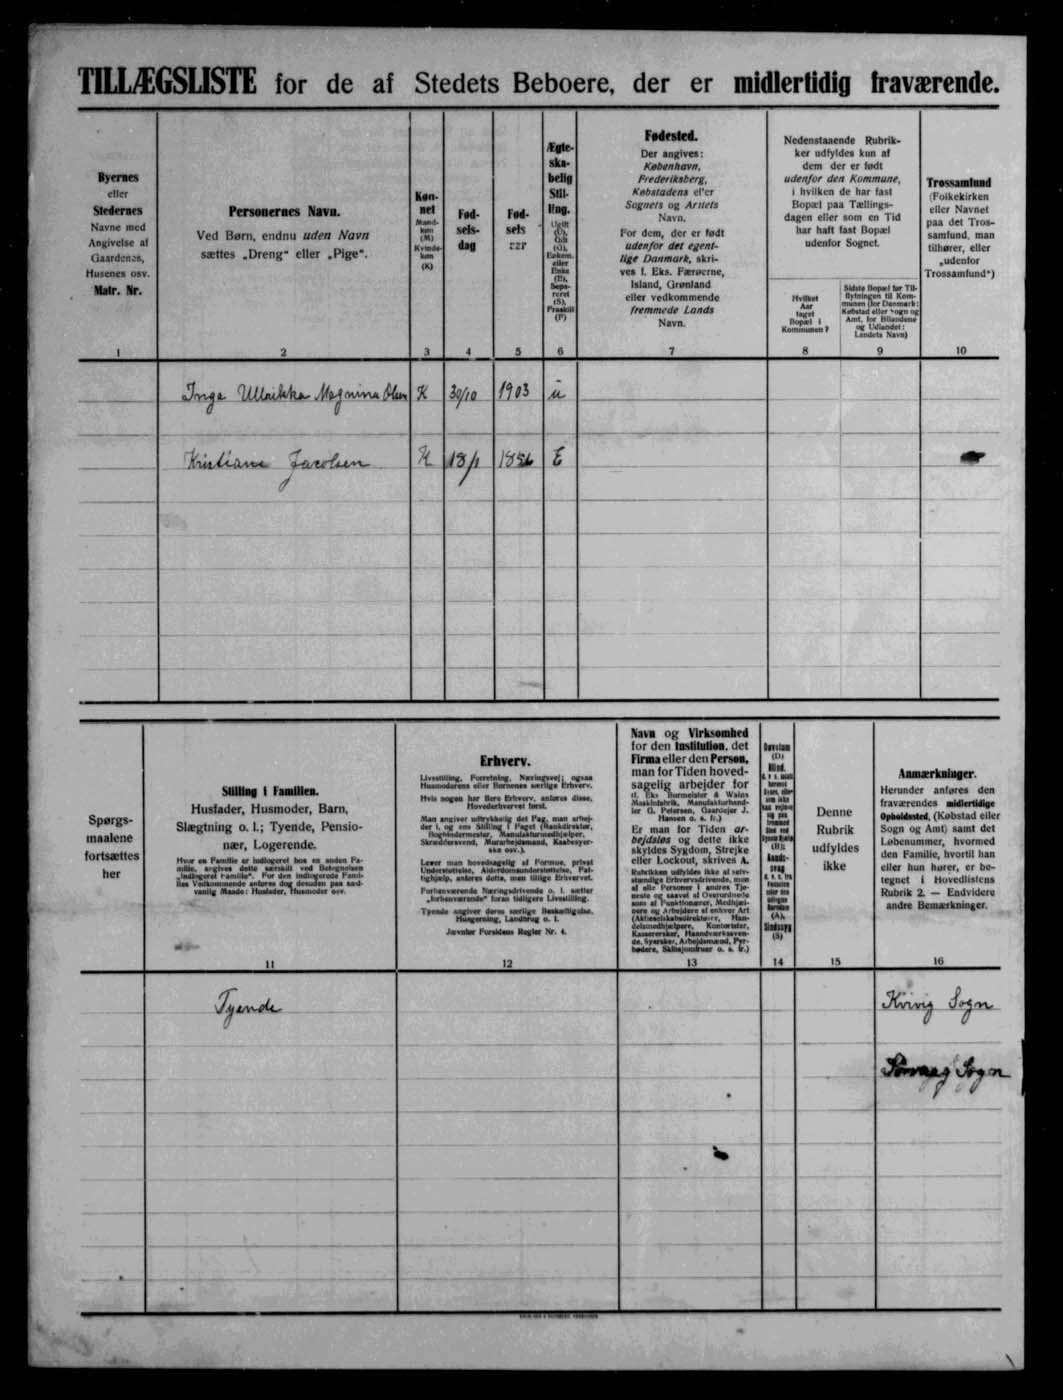 TILLÆGSLISTE for de af Stedets Beboere, der er midlertidig fraværende.
Byernes
eller
Stedernes
Navne med
Angivelse af
Gaardenes,
Husenes osv.
Matr. Nr.
1
Personernes Navn.
Ved Børn, endnu uden Navn
sættes „Dreng“ eller „Pige“.
2
Køn-
net
Mand-
køn
(M)
Kvinde-
køn
(K)
3
Fød-
sels-
dag
4
Fød-
sels
aar
5
Ægte-
ska-
belig
Stil-
ling.
Ugift
(U),
Gift
(G),
Enkem.
eller
Enke
(E),
Sepa-
reret
(S),
Fraskilt
(F)
6
Fødested.
Der angives:
København,
Frederiksberg,
Købstadens eller
Sognets og Amtets
Navn.
For dem, der er født
udenfor det egent-
lige Danmark, skri-
ves f. Eks. Færøerne,
Island, Grønland
eller vedkommende
fremmede Lands
Navn.
7
Nedenstaaende Rubrik-
ker udfyldes kun af
dem der er født
udenfor den Kommune,
i hvilken de har fast
Bopæl paa Tællings-
dagen eller som en Tid
har haft fast Bopæl
udenfor Sognet.
Hvilket
Aar
taget
Bopæl i
Kommunen?
8
Sidste Bopæl før Til-
flytningen til Kom-
munen (for Danmark:
Købstad eller Sogn og
Amt, for Bilandene
og Udlandet:
Landets Navn)
9
Trossamfund
(Folkekirken
eller Navnet
paa det Tros-
samfund, man
tilhører, eller
„udenfor
Trossamfund“)
10
Inga Ullrikka Magnina Olsen K 30/10 1903 u
Kristiane Jacobsen K 18/1 E
Spørgs-
maalene
fortsættes
her
Stilling i Familien.
Husfader, Husmoder, Barn,
Slægtning o. l.; Tyende, Pensio-
nær, Logerende.
Hvor en Familie er indlogeret hos en anden Fa-
milie, angives dette særskilt ved Betegnelsen
„indlogeret Familie“. For den indlogerede Fami-
lies Vedkommende anføres dog desuden paa sæd-
vanlig Maade: Husfader, Husmoder osv.
11
Erhverv.
Livestilling, Forretning, Næringsvej; ogsaa
Husmoderens eller Børnenes særlige Erhverv.
Hvis nogen har flere Erhverv, anføres disse,
Hovederhvervet først.
Man angiver udtrykkelig det Fag, man arbej-
der i, og ens Stilling i Faget (Bankdirektør,
Bogbindermester, Manufakturhandlhjælper,
Skræddersvend, Murarbejdsmand, Kaabesyer-
ske osv.).
Lever man hovedsagelig af Formue, privat
Understøttelse, Alderdomsunderstøttelse, Fat-
tighjælp, anføres dette, men tillige Erhvervet.
Forhenværende Næringsdrivende o. l. sætter
„forhenværende“ foran tidligere Livestilling.
Tyende angiver deres særlige Beskæftigelse,
Husgerning, Landbrug o. l.
Jævnfør Forsidens Regler Nr. 4.
12
Navn og Virksomhed
for den Institution, det
Firma eller den Person,
man for Tiden hoved-
sagelig arbejder for
(f. Eks. Burmeister & Wains
Maskinfabrik, Manufakturhand-
ler G. Petersen, Gaardejer J.
Hansen o. s. fr.)
Er man for Tiden ar-
bejdsløs og dette ikke
skyldes Sygdom, Strejke
eller Lockout, skrives A.
Rubrikken udfyldes ikke af selv-
stændige Erhvervsdrivende, men
af alle Personer i andres Tje-
neste og saavel af Overordnede
som af Funktionærer, Medhjæl-
pere og Arbejdere af enhver Art
(Aktieselskabsdirektører, Han-
delsmedhjælpere, Kontorister,
Kassererske, Haandværkssven-
de, Syersker, Arbejdsmænd, Pyr-
bødere, Skibsjomfruer o. s. fr.)
13
Døvstum
(D)
Blind,
14
Denne
Rubrik
udfyldes
ikke
15
Anmærkninger.
Herunder anføres den
fraværendes midlertidige
Opholdssted, (Købstad eller
Sogn og Amt) samt det
Løbenummer, hvormed
den Familie, hvortil han
eller hun hører, er be-
tegnet i Hovedlistens
Rubrik 2. — Endvidere
andre Bemærkninger.
16
Tyende Kvivig Sogn
Sørvaag Sogn